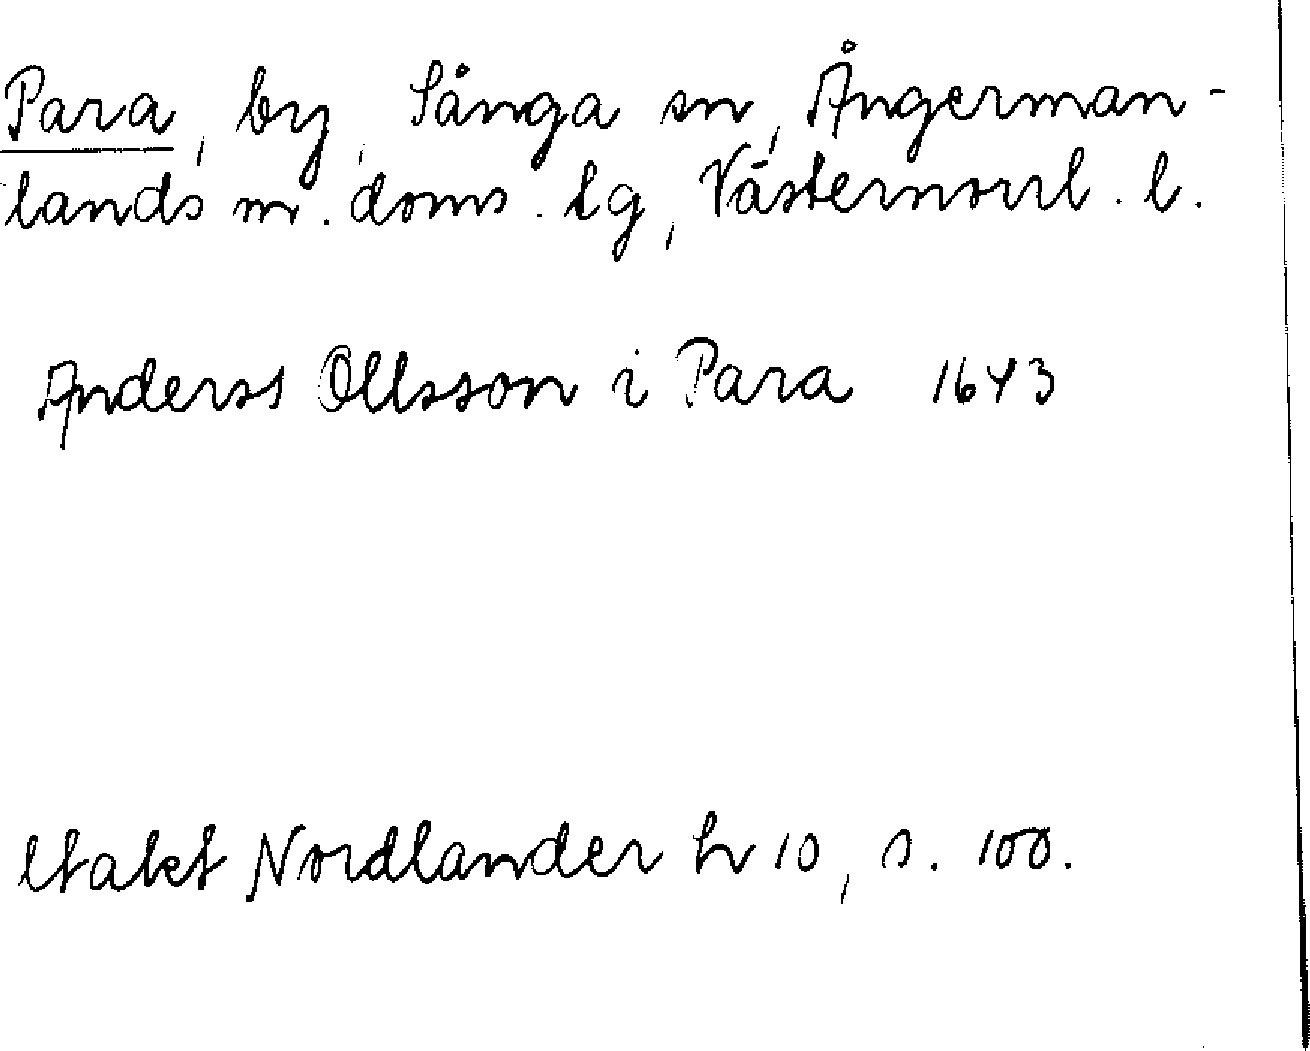 Para, by, Sånga sn, Ångerman-
lands m. doms. lg, Västernorrl. l.
Anderss Ollsson i Para 1643
Utakt Nordlander h 10, s. 100.